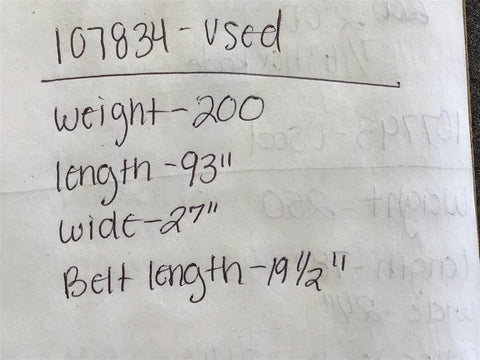 107834 - Used
weight - 200
length - 93"
wide - 27"
Belt length - 19 1/2"